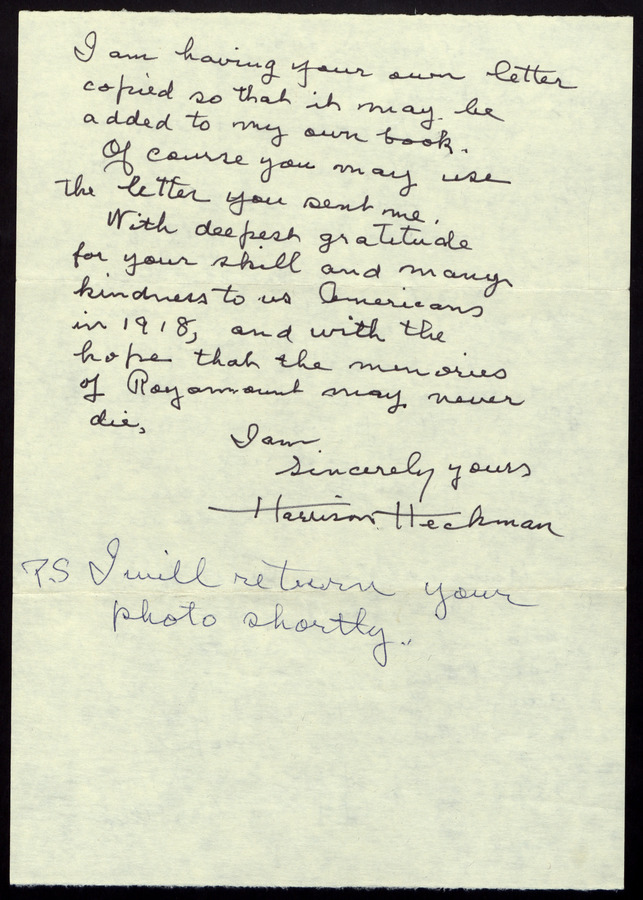 I am having your own letter
copied so that it may be
added to my own book.
Of course you may use
the letter you sent me.
With deepest gratitude
for your skill and many
kindness to us Americans
in 1918, and with the
hope that the memories
of Royamount may never
die,
I am
Sincerely yours
Harrison Heckman
P.S I will return your
photo shortly.